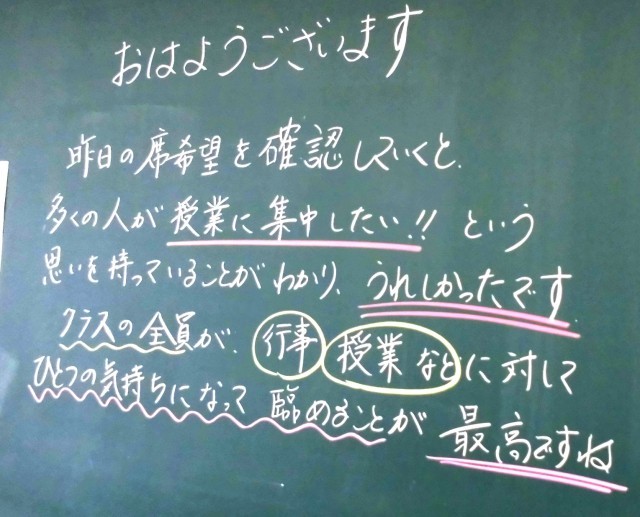 おはようございます
昨日の席希望を確認していくと、
多くの人が授業に集中したい!!という
思いを持っていることがわかり、うれしかったです。
クラスの全員が、行事 授業などに対して
ひとつの気持ちになって臨めることが最高ですね